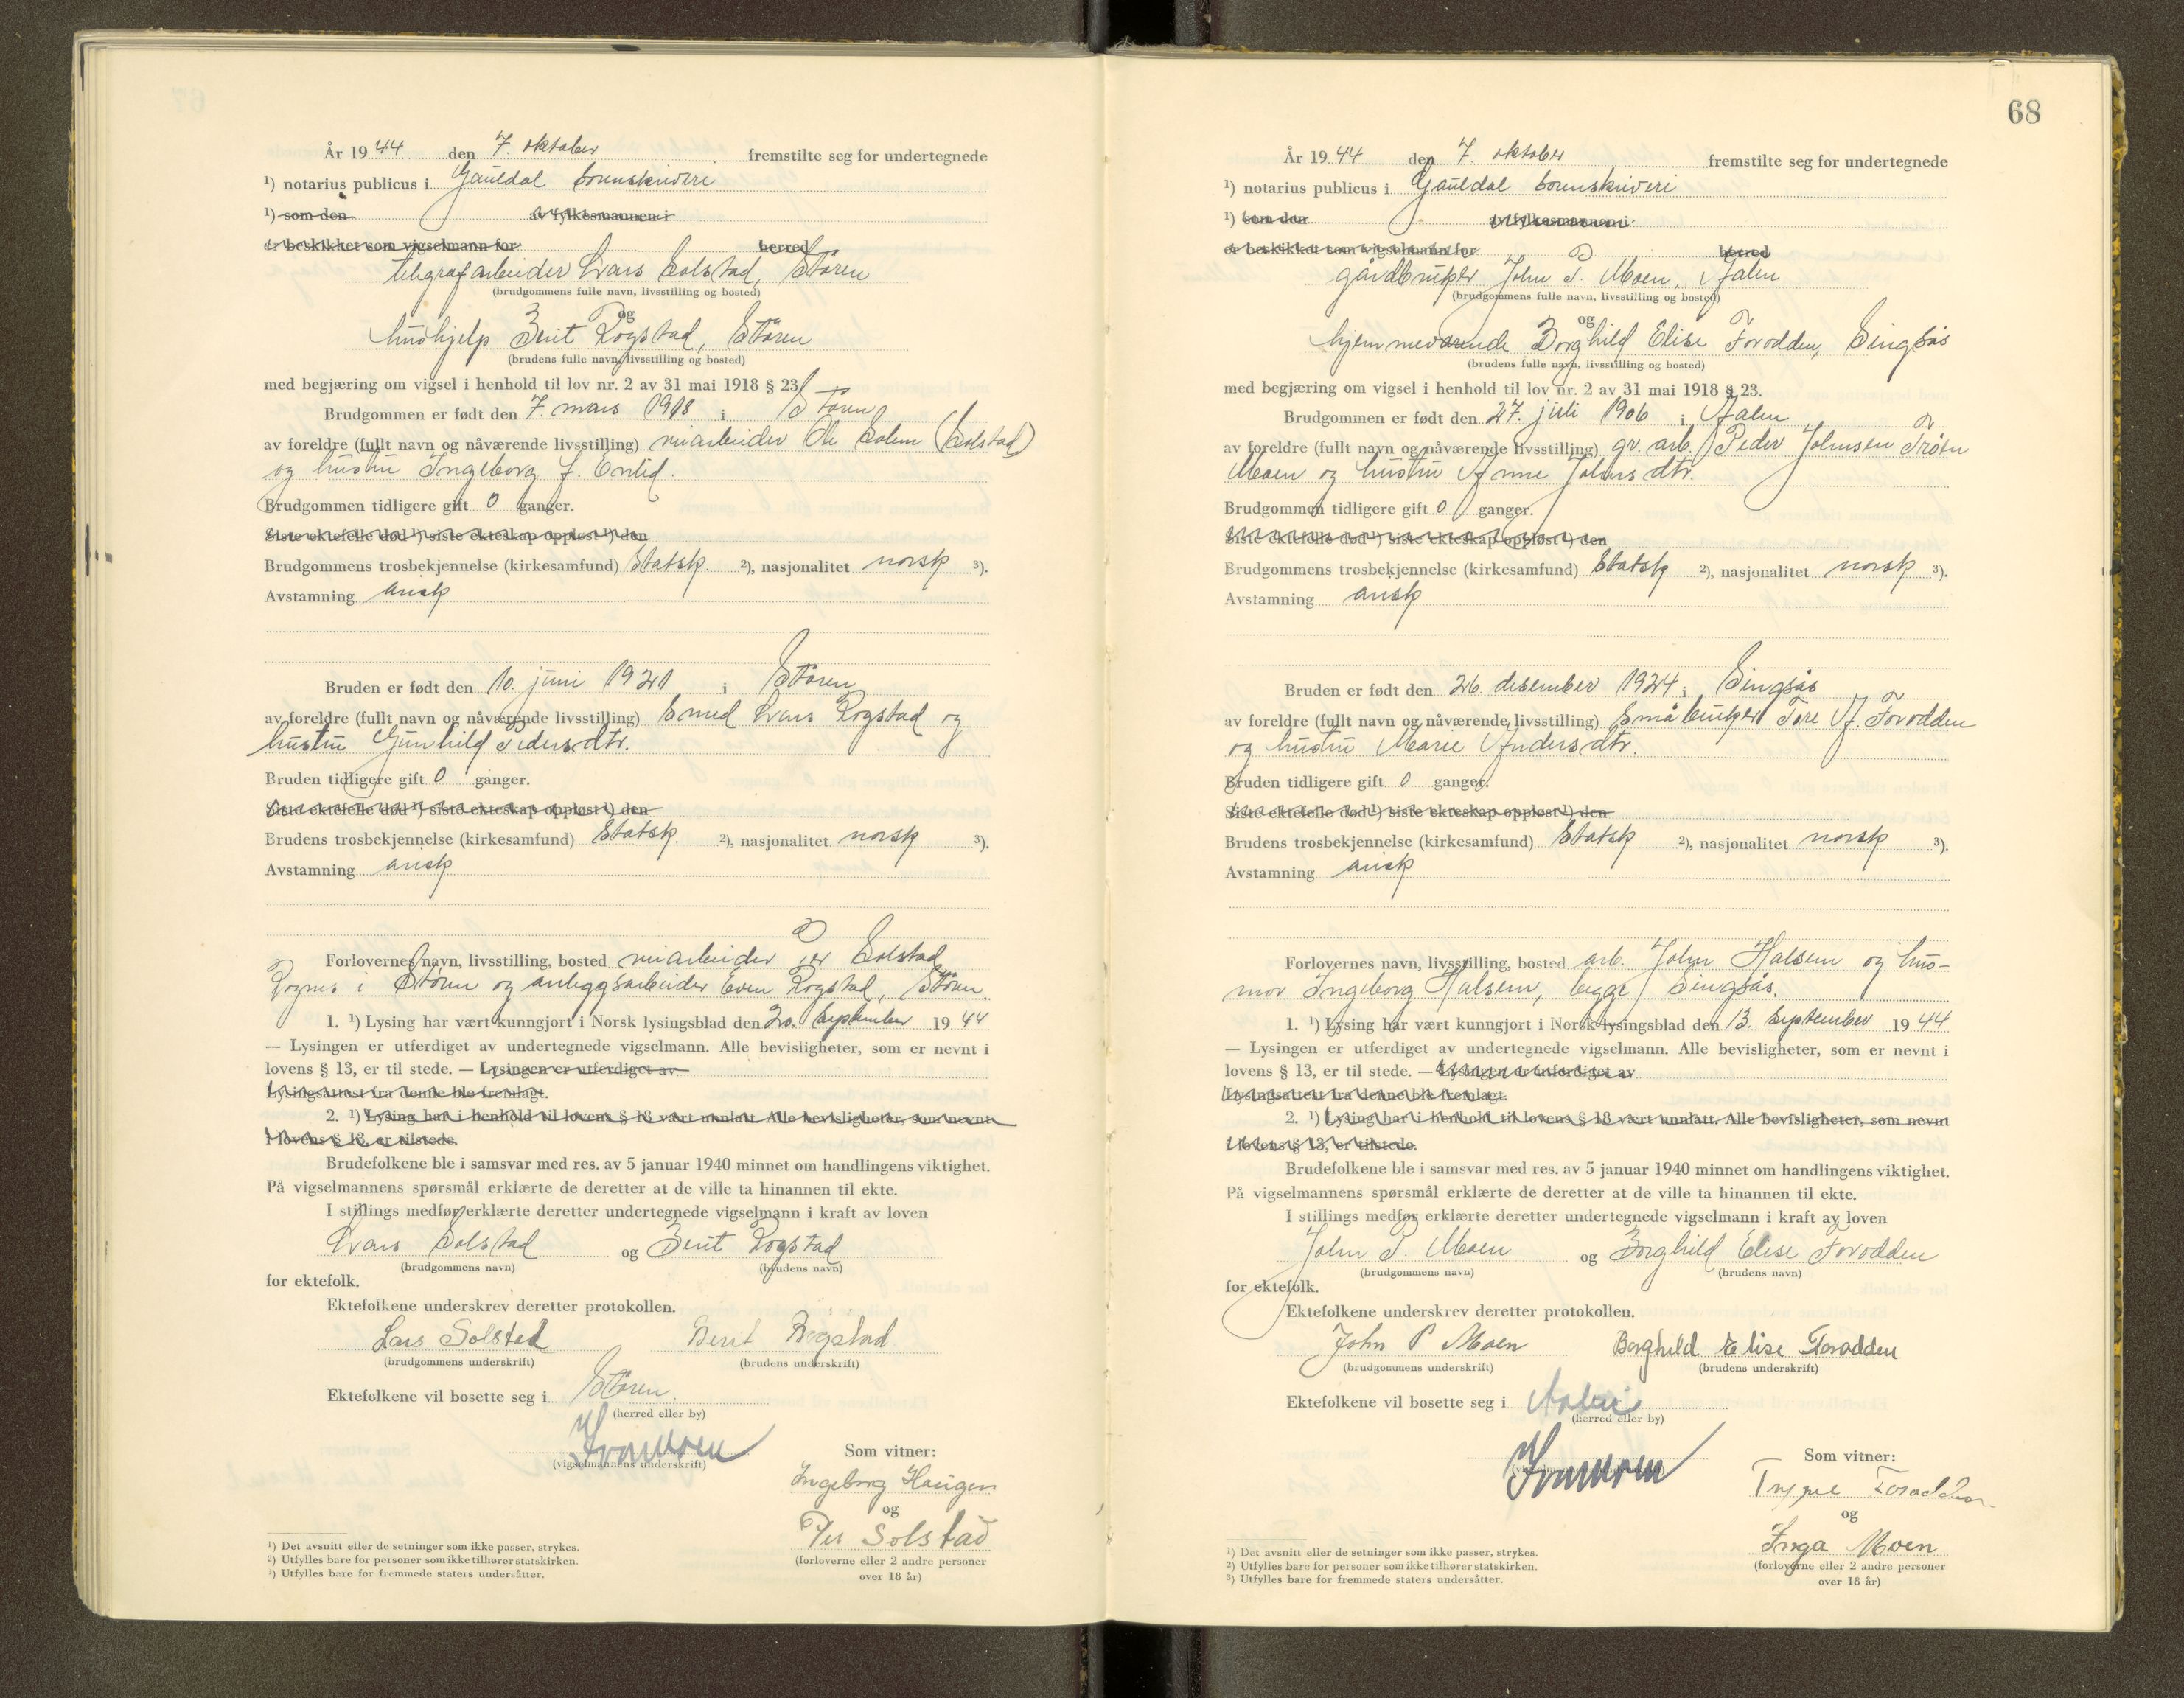 År 1944 den 7. oktober fremstilte seg for undertegnede
¹) notarius publicus i Gauldal sorenskriveri
¹) som den av fylkesmannen i
er beskikket som vigselmann for herred
telegrafarbeider Lars Solstad, Støren
(brudgommens fulle navn, livsstilling og bosted)
og
hushjelp Berit Rogstad, Støren
(brudens fulle navn, livsstilling og bosted)
med begjæring om vigsel i henhold til lov nr. 2 av 31 mai 1918 § 23.
Brudgommen er født den 7. mars 1918 i Støren
av foreldre (fullt navn og nåværende livsstilling) veiarbeider Ole Solem (Solstad)
og hustru Ingeborg f. Enlid.
Brudgommen tidligere gift 0 ganger.
Siste ektefelle død ¹) siste ekteskap oppløst ¹) den
Brudgommens trosbekjennelse (kirkesamfund) Statsk. ²), nasjonalitet norsk ³).
Avstamning arisk
Bruden er født den 10. juni 1921 i Støren
av foreldre (fullt navn og nåværende livsstilling) Smed Lars Rogstad og
hustru Gunhild Pedersdtr.
Bruden tidligere gift 0 ganger.
Siste ektefelle død ¹) siste ekteskap oppløst ¹) den
Brudens trosbekjennelse (kirkesamfund) Statsk. ²), nasjonalitet norsk ³).
Avstamning arisk
Forlovernes navn, livsstilling, bosted veiarbeider Per Solstad
Rognes i Støren og anleggsarbeider Even Rogstad, Støren.
1. ¹) Lysing har vært kunngjort i Norsk lysingsblad den 20. september 1944
— Lysingen er utferdiget av undertegnede vigselmann. Alle bevisligheter, som er nevnt i
lovens § 13, er til stede. — Lysingen er utferdiget av
Lysingsattest fra denne ble fremlagt.
2. ¹) Lysing har i henhold til lovens § 18 vært unnlatt. Alle bevisligheter, som nevnt
i lovens § 13, er tilstede.
Brudefolkene ble i samsvar med res. av 5 januar 1940 minnet om handlingens viktighet.
På vigselmannens spørsmål erklærte de deretter at de ville ta hinannen til ekte.
I stillings medfør erklærte deretter undertegnede vigselmann i kraft av loven
Lars Solstad og Berit Rogstad
(brudgommens navn) (brudens navn)
for ektefolk.
Ektefolkene underskrev deretter protokollen.
Lars Solstad Berit Rogstad
(brudgommens underskrift) (brudens underskrift)
Ektefolkene vil bosette seg i Støren.
(herred eller by)
(vigselmannens underskrift)
Som vitner:
Ingeborg Haugen
og
Per Solstad
(forloverne eller 2 andre personer
over 18 år)
¹) Det avsnitt eller de setninger som ikke passer, strykes.
²) Utfylles bare for personer som ikke tilhører statskirken.
³) Utfylles bare for fremmede staters undersåtter.
68
År 1944 den 7. oktober fremstilte seg for undertegnede
¹) notarius publicus i Gauldal sorenskriveri
¹) som den av fylkesmannen i
er beskikket som vigselmann for herred
gårdbruker John P. Moen, Ålen
(brudgommens fulle navn, livsstilling og bosted)
og
hjemmeværende Borghild Elise Forodden, Singsås
(brudens fulle navn, livsstilling og bosted)
med begjæring om vigsel i henhold til lov nr. 2 av 31 mai 1918 § 23.
Brudgommen er født den 27. juli 1906 i Ålen
av foreldre (fullt navn og nåværende livsstilling) gr. arb. Peder Johnsen Trøen
Moen og hustru Anne Johnsdtr.
Brudgommen tidligere gift 0 ganger.
Siste ektefelle død ¹) siste ekteskap oppløst ¹) den
Brudgommens trosbekjennelse (kirkesamfund) Statsk ²), nasjonalitet norsk ³).
Avstamning arisk
Bruden er født den 26. desember 1924 i Singsås
av foreldre (fullt navn og nåværende livsstilling) Småbruker Tore A. Forodden
og hustru Marie Andersdtr.
Bruden tidligere gift 0 ganger.
Siste ektefelle død ¹) siste ekteskap oppløst ¹) den
Brudens trosbekjennelse (kirkesamfund) Statsk ²), nasjonalitet norsk ³).
Avstamning arisk
Forlovernes navn, livsstilling, bosted arb. John Halsen og hus-
mor Ingeborg Halsen, begge Singsås.
1. ¹) Lysing har vært kunngjort i Norsk lysingsblad den 13. september 1944
— Lysingen er utferdiget av undertegnede vigselmann. Alle bevisligheter, som er nevnt i
lovens § 13, er til stede. — Lysingen er utferdiget av
Lysingsattest fra denne ble fremlagt.
2. ¹) Lysing har i henhold til lovens § 18 vært unnlatt. Alle bevisligheter, som nevnt
i lovens § 13, er tilstede.
Brudefolkene ble i samsvar med res. av 5 januar 1940 minnet om handlingens viktighet.
På vigselmannens spørsmål erklærte de deretter at de ville ta hinannen til ekte.
I stillings medfør erklærte deretter undertegnede vigselmann i kraft av loven
John P. Moen og Borghild Elise Forodden
(brudgommens navn) (brudens navn)
for ektefolk.
Ektefolkene underskrev deretter protokollen.
John P Moen Borghild Elise Forodden
(brudgommens underskrift) (brudens underskrift)
Ektefolkene vil bosette seg i Aalen
(herred eller by)
(vigselmannens underskrift)
Som vitner:
Forodden
og
Inga Moen
(forloverne eller 2 andre personer
over 18 år)
¹) Det avsnitt eller de setninger som ikke passer, strykes.
²) Utfylles bare for personer som ikke tilhører statskirken.
³) Utfylles bare for fremmede staters undersåtter.